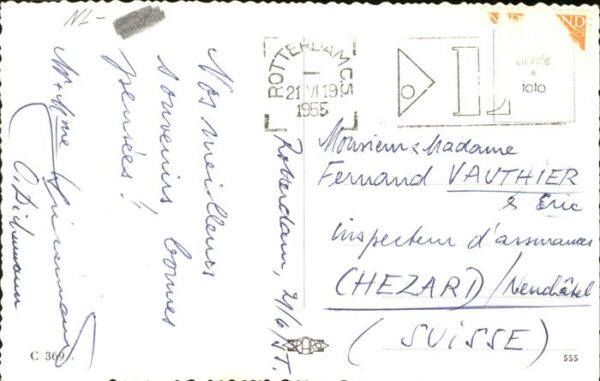 NL-
Nos meilleurs
souvenirs, bonnes
pensées!
Mr & Mme
Rotterdam, 21/6/55.
ROTTERDAM CS
21 VI 19
1955
Monsieur & Madame
Fernand VAUTHIER
& Eric
inspecteur d'assurances
(HEZARD/Neuchâtel
(SUISSE)
C 369
555
oude
&
toto